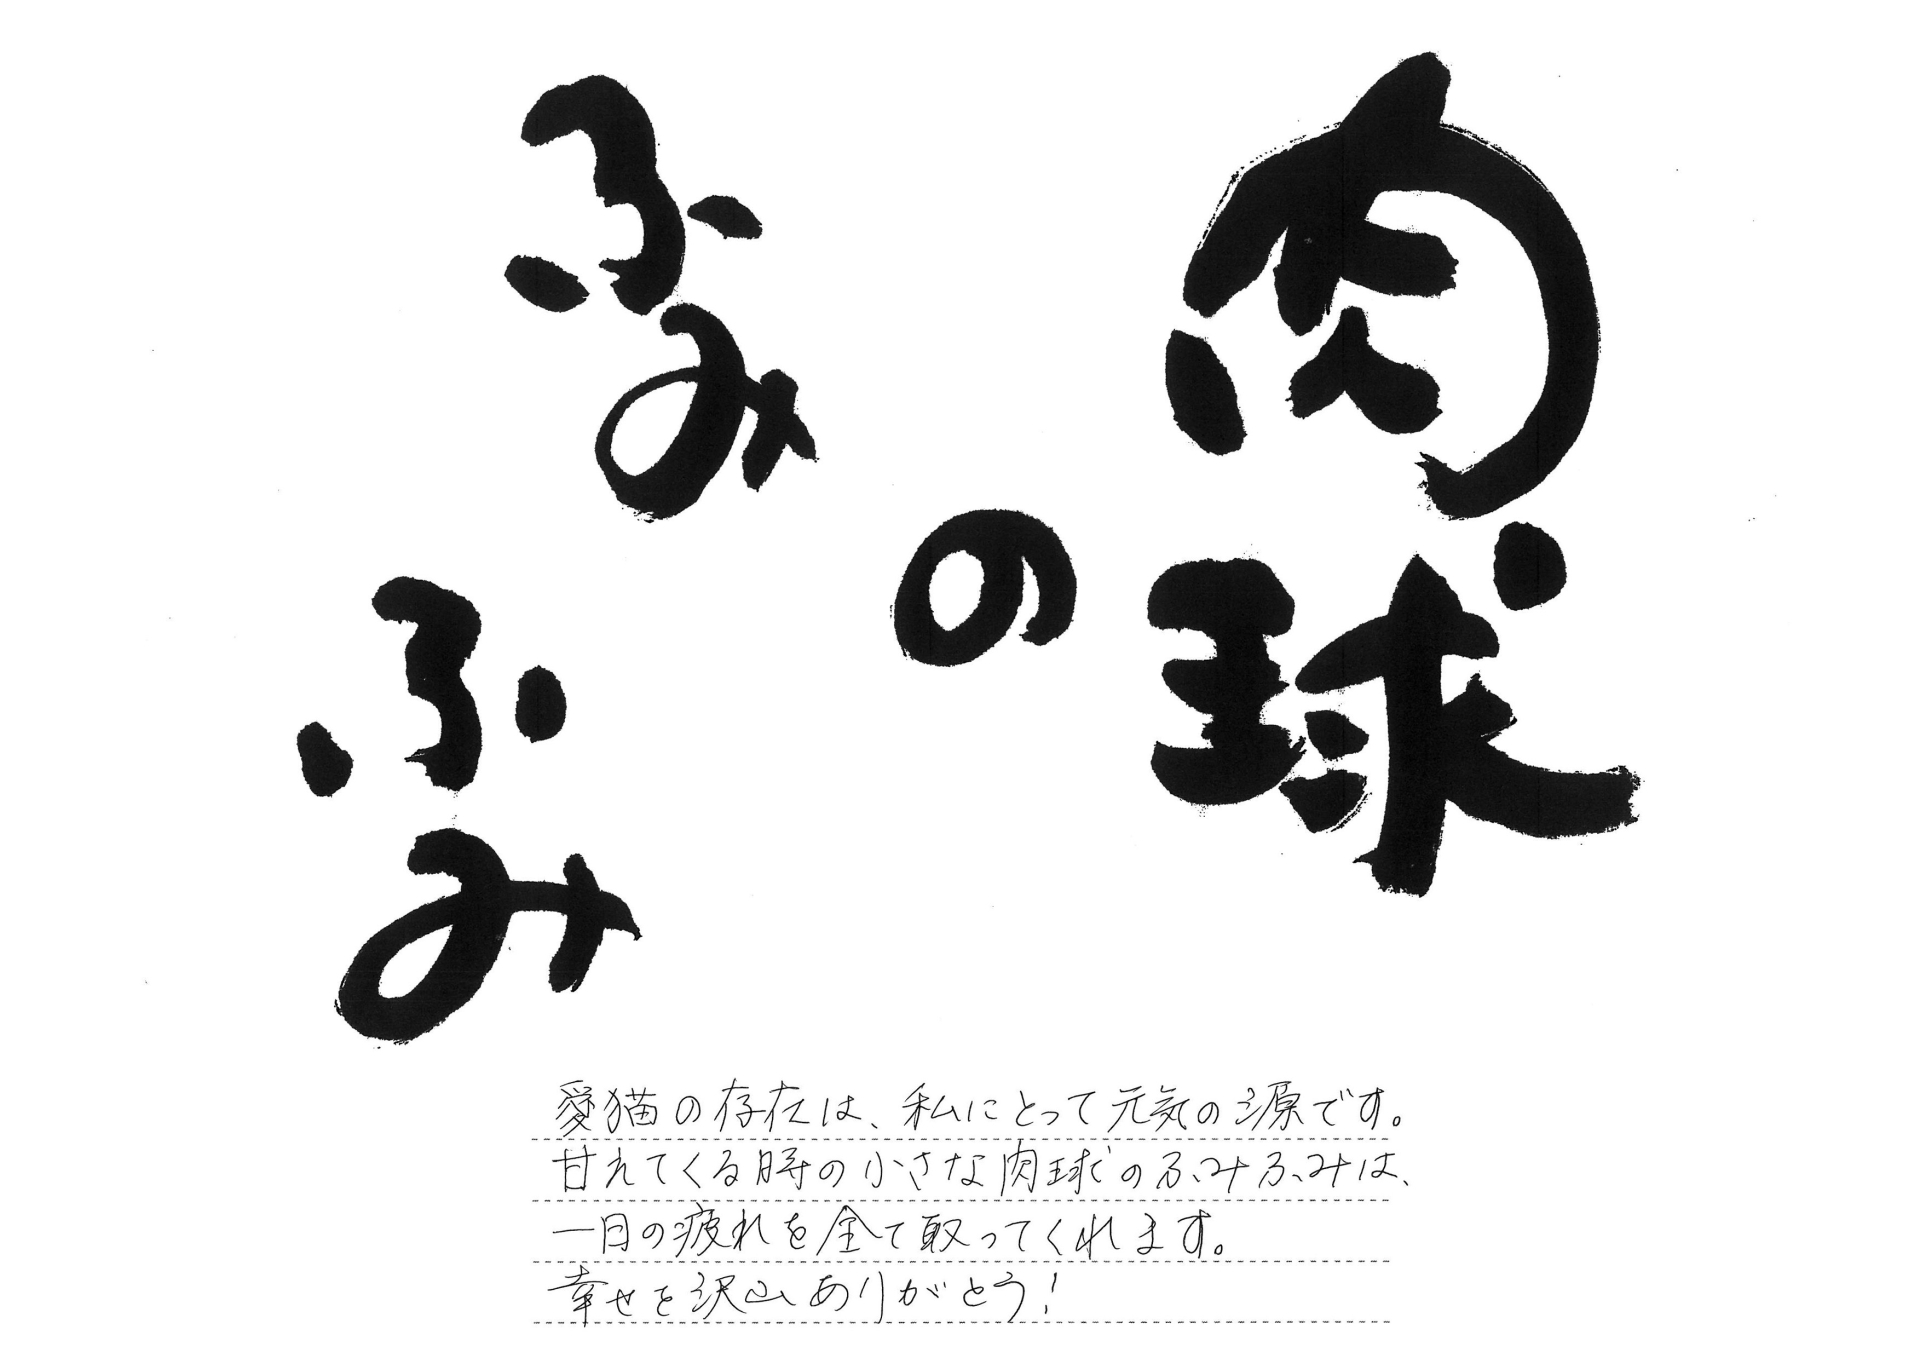 肉球
の
ふみ
ふみ
愛猫の存在は、私にとって元気の源です。
甘えてくる時の小さな肉球のふみふみは、
一日の疲れを全て取ってくれます。
幸せを沢山ありがとう!